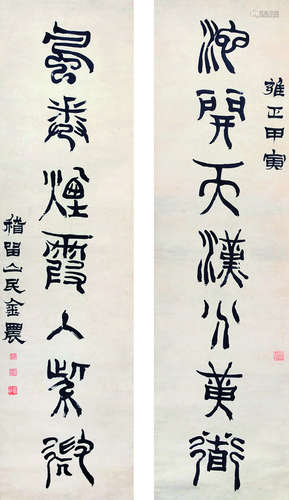 雍正甲寅
池開天漢分黃道
風卷煙霞入紫微
稽留山民金農